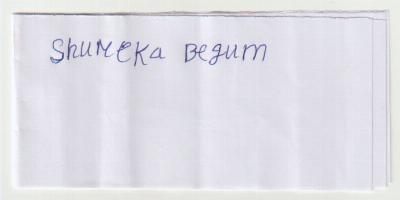 Shumeka Begum